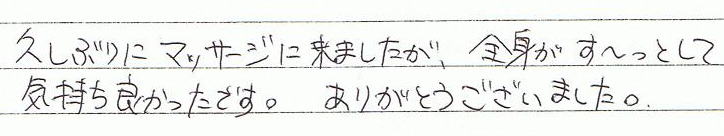 久しぶりに マッサージに来ましたが、全身が す〜っとして
気持ち良かったです。 ありがとうございました。